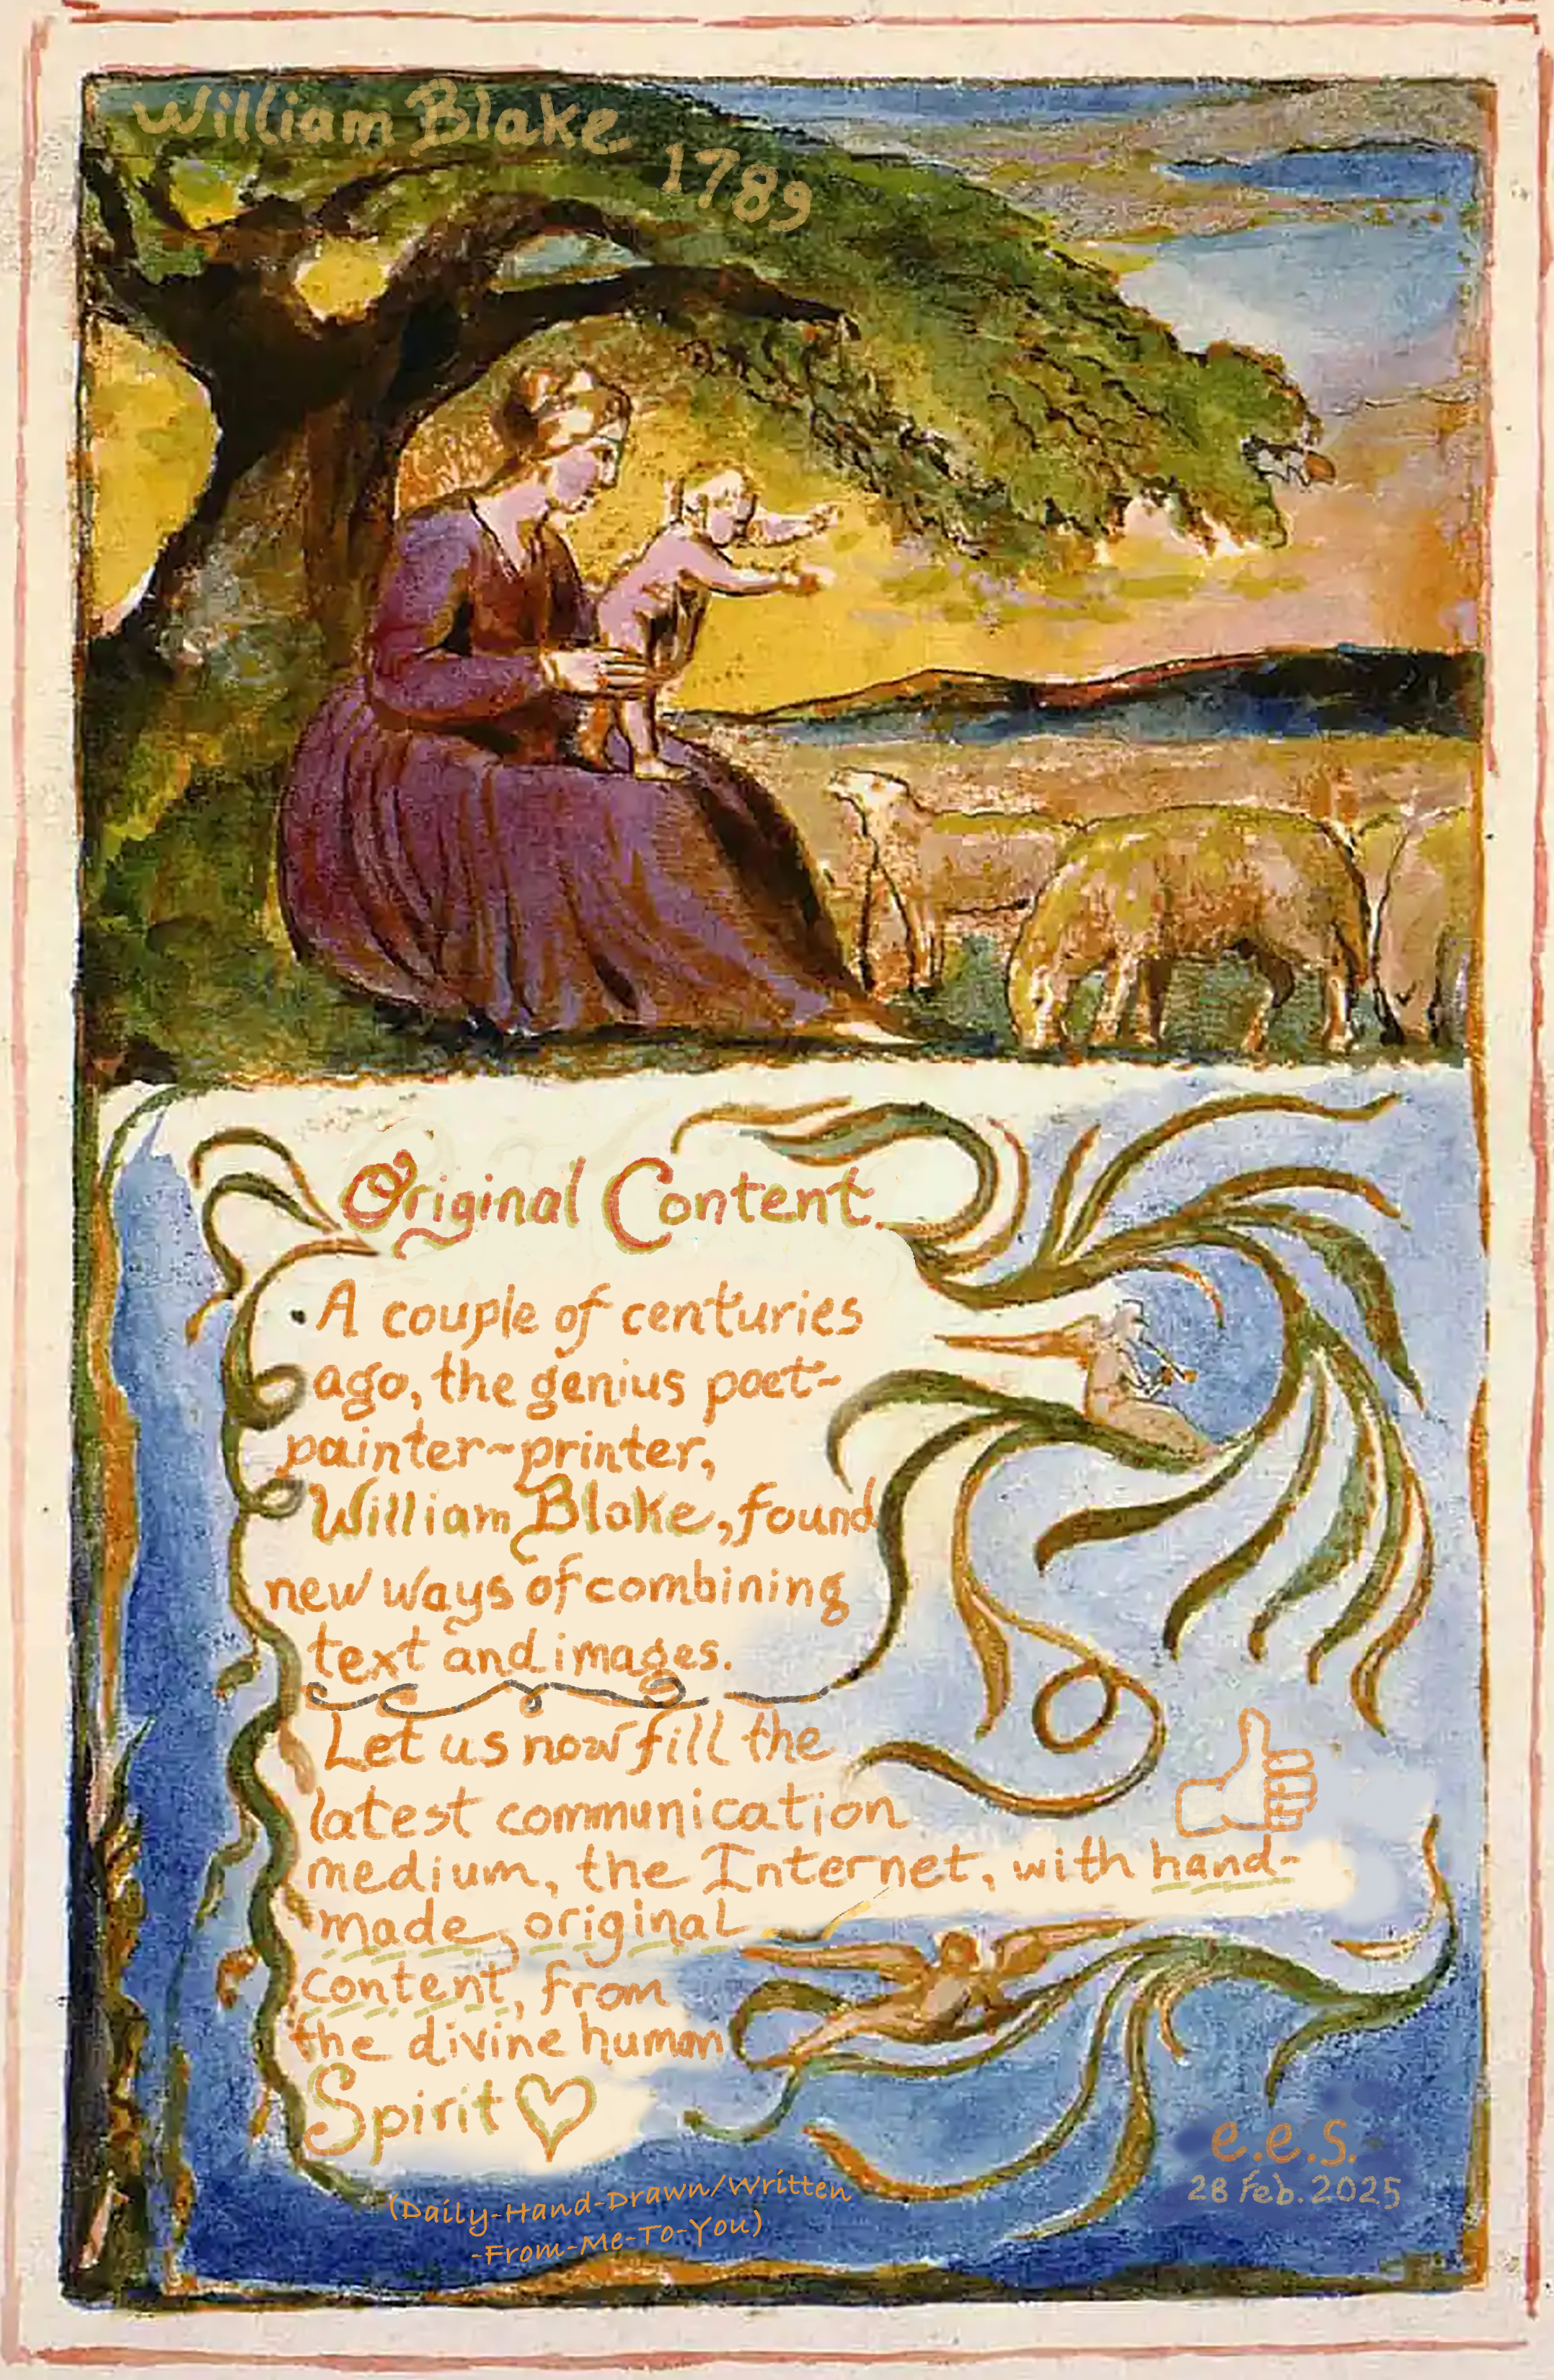 William Blake
1789
Original Content
•A couple of centuries
ago, the genius poet-
painter-printer,
William Blake, found
new ways of combining
text and images.
Let us now fill the
latest communication
medium, the Internet, with hand-
made, original
content, from
the divine human
Spirit ♡
(Daily-Hand-Drawn/Written
-From-Me-To-You)
e.e.s.
28 Feb. 2025